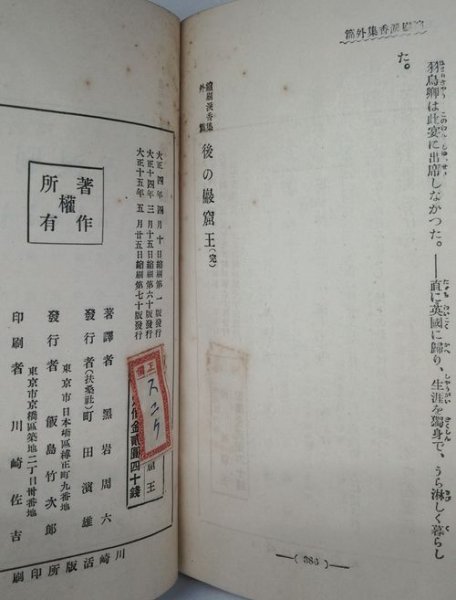 縮刷涙香集外篇
羽鳥卿は此宴に出席しなかつた。――直に英國に歸り、生涯を獨身で、うら淋しく暮らし
た。
(385)
縮刷涙香集
外篇
後の巖窟王(完)
著作
權
所有
大正四年四月十日縮刷第一版發行
大正十四年三月十五日縮刷第六十版發行
大正十五年五月廿五日縮刷第七十版發行
窟王
價金貳圓四十錢
著譯者 黑岩周六
發行者(扶桑社)町田濱雄
發行者 飯島竹次郎
東京市京橋區築地二丁目卌番地
印刷者 川崎佐吉
川崎活版所印刷